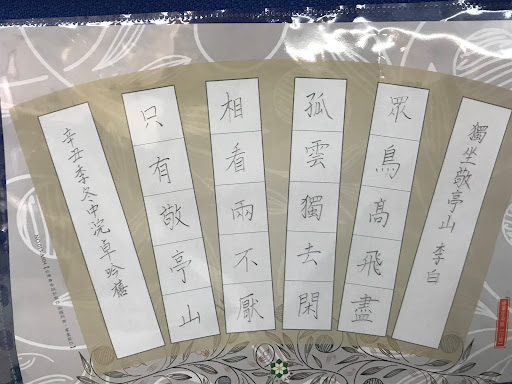 獨坐敬亭山 李白
眾鳥高飛盡
孤雲獨去閑
相看兩不厭
只有敬亭山
辛丑季冬中浣卓吟禧